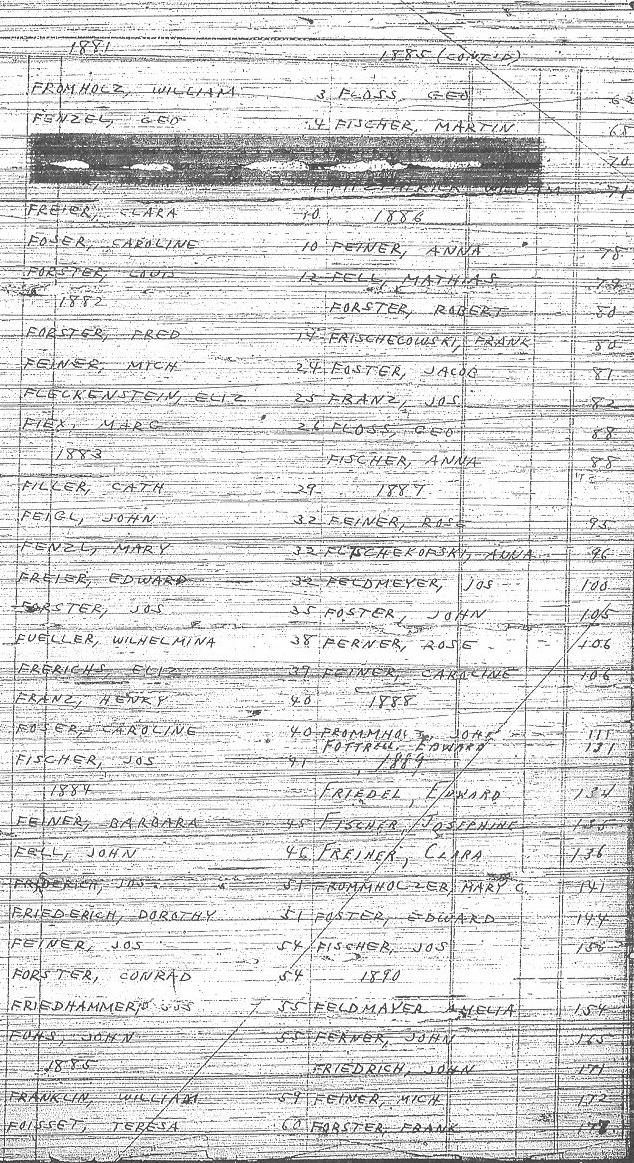 1881
FROMHOLZ, WILLIAM 3
FENZEL, GEO 4
FREIER, CLARA 10
FOSER, CAROLINE 10
FORSTER, LOUIS 12
1882
FORSTER, FRED 14
FEINER, MICH 24
FLECKENSTEIN, ELIZ 25
FIEX, MARG 26
1883
FILLER, CATH 29
FEIGL, JOHN 32
FENZL, MARY 32
FREIER, EDWARD 32
FORSTER, JOS 35
FUELLER, WILHELMINA 38
FRERICHS, ELIZ 39
FRANZ, HENRY 40
FOSER, CAROLINE 40
FISCHER, JOS 41
1884
FEINER, BARBARA 45
FELL, JOHN 46
FREDERICH, JOS 51
FRIEDERICH, DOROTHY 51
FEINER, JOS 54
FORSTER, CONRAD 54
FRIEDHAMMER, JOS 55
FUHS, JOHN 55
1885
FRANKLIN, WILLIAM 59
FOISSET, TERESA 60
1885 (CONT'D)
FLOSS, GEO 62
FISCHER, MARTIN 65
70
FITZPATRICK WILLIAM 71
1886
FEINER, ANNA 78
FELL, MATHIAS
FORSTER, ROBERT 80
FRISCHECOWSKI, FRANK 80
FOSTER, JACOB 81
FRANZ, JOS 82
FLOSS, GEO 88
FISCHER, ANNA 88
1887
FEINER, ROSE 95
FLISCHEKOFSKI, ANNA 96
FELDMEYER, JOS 100
FOSTER, JOHN 105
FERNER, ROSE 106
FEINER, CAROLINE 106
1888
FROMMHOLZ, JOHN 111
FOTTRELL, EDWARD 131
1889
FRIEDEL, EDWARD 134
FISCHER, JOSEPHINE 135
FREINER, CLARA 136
FROMMHOLZER, MARY C. 141
FOSTER, EDWARD 144
FISCHER, JOS
1890
FELDMAYER AMELIA 154
FERNER, JOHN 165
FRIEDRICH, JOHN 171
FEINER, MICH 172
FORSTER, FRANK